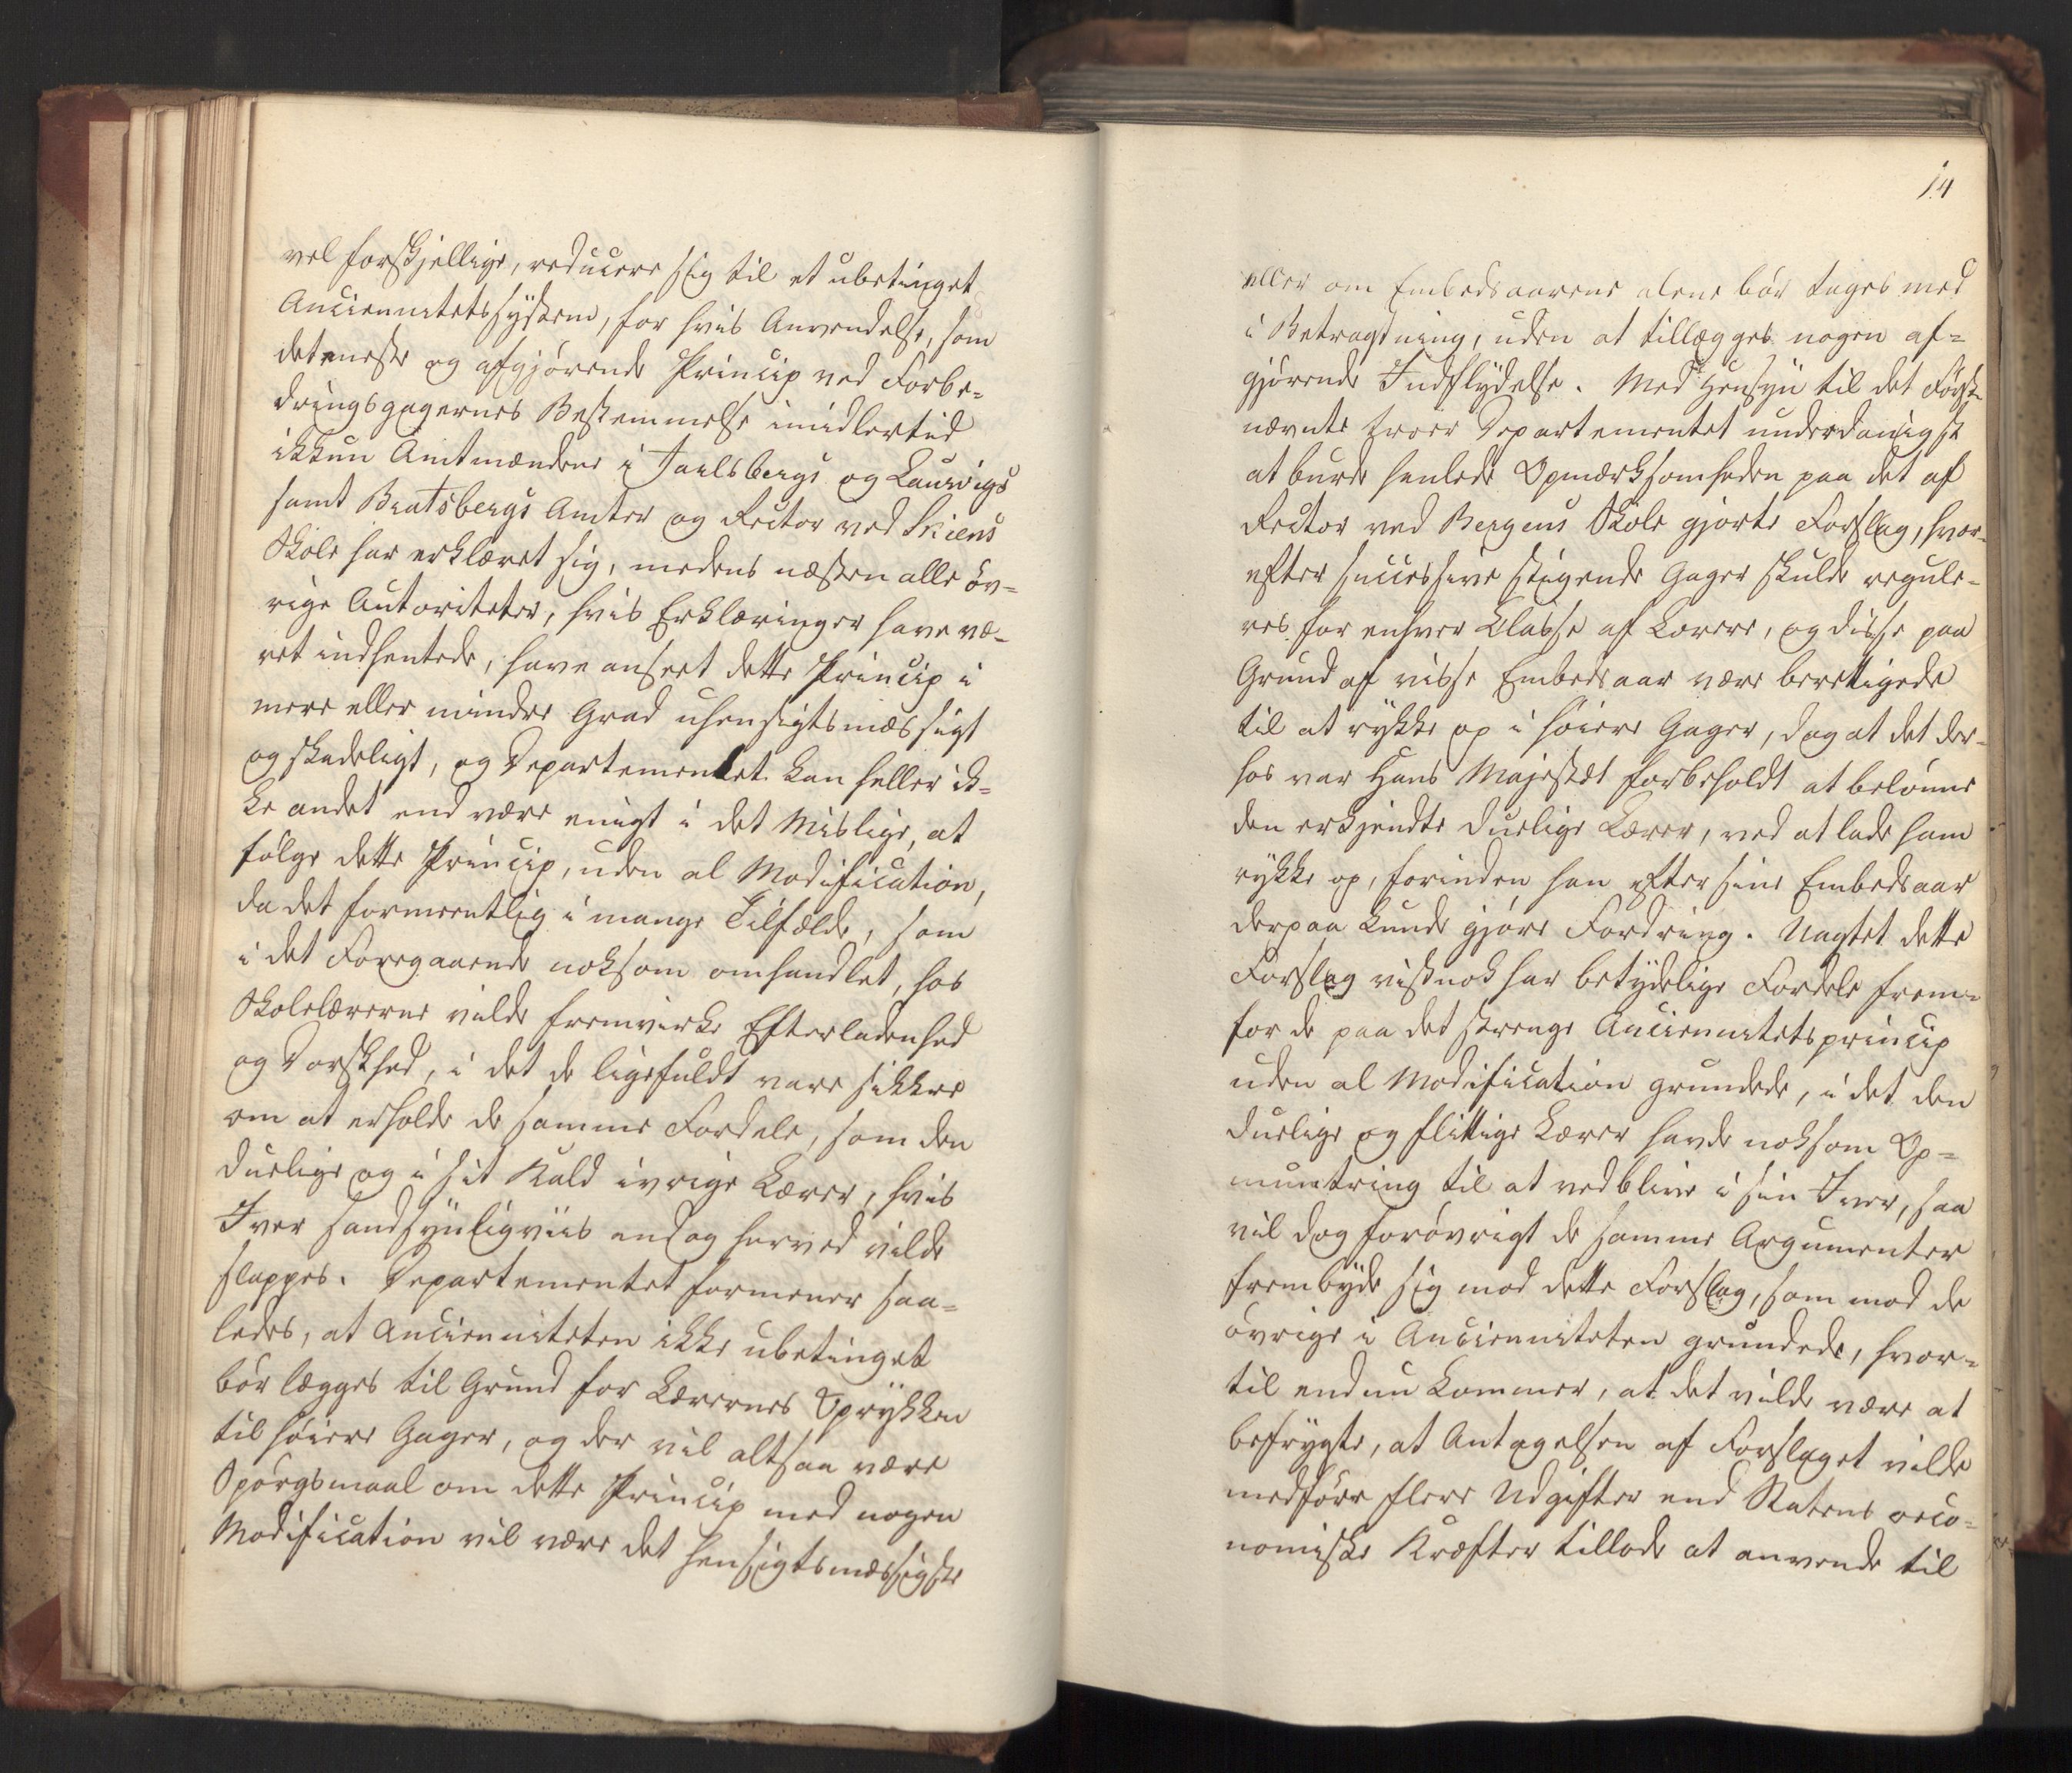 vel forskjellige, reducere sig til et ubetinget
Anciennitetssystem, for hvis Anvendelse, som
det eneste og afgjørende Princip ved Forbe-
dringsgagernes Bestemmelse imidlertid
ikkun Amtmændene i Jarlsbergs og Laurvigs
samt Bratsbergs Amter og Rector ved Skiens
Skole har erklæret sig, medens næsten alle öv-
rige Autoriteter, hvis Erklæringer have væ-
ret indhentede, have anseet dette Princip i
mere eller mindre Grad uhensigtsmæssigt
og skadeligt, og Departementet kan heller ik-
ke andet end være enigt i det Mislige, at
følge dette Princip, uden al Modification,
da det formeentlig i mange Tilfælde, som
i det Foregaaende noksom omhandlet, hos
Skolelærerne vilde fremvirke Efterladenhed
og Dorskhed, i det de ligefuldt vare sikkre
om at erholde de samme Fordele, som den
duelige og i sit Kald ivrige Lærer, hvis
Iver sandsynligviis endog herved vilde
slappes. Departementet formener saa-
ledes, at Ancienniteten ikke ubetinget
bör lægges til Grund for Lærernes Oprykken
til höiere Gager, og der vil altsaa være
Spörgsmaal om dette Princip med nogen
Modification vil være det hensigtsmæssigste
14
eller om Embedsaarene alene bör tages med
i Betragtning, uden at tillægges nogen af-
gjörende Indflydelse. Med Hensyn til det Först-
nævnte troer Departementet underdanigst
at burde henlede Opmærksomheden paa det af
Rector ved Bergens Skole gjorte Forslag, hvor-
efter successive stigende Gager skulde regule-
res for enhver Classe af Lærere, og disse paa
Grund af visse Embedsaar være berettigede
til at rykke op i höiere Gager, dog at det der-
hos var Hans Majestæt forbeholdt at belönne
den erkjendte duelige Lærer, ved at lade ham
rykke op, forinden han efter sine Embedsaar
derpaa kunde gjöre Fordring. Uagtet dette
Forslag vistnok har betydelige Fordele frem-
for de paa det strenge Anciennitetsprincip
uden al Modification grundede, i det den
duelige og flittige Lærer havde noksom Op-
muntring til at vedblive i sin Iver, saa
vil dog forövrigt de samme Argumenter
frembyde sig mod dette Forslag, som mod de
övrige i Ancienniteten grundede, hvor-
til endnu kommer, at det vilde være at
befrygte, at Antagelsen af Forslaget vilde
medföre flere Udgifter end Statens oeco-
nomiske Kræfter tillode at anvende til